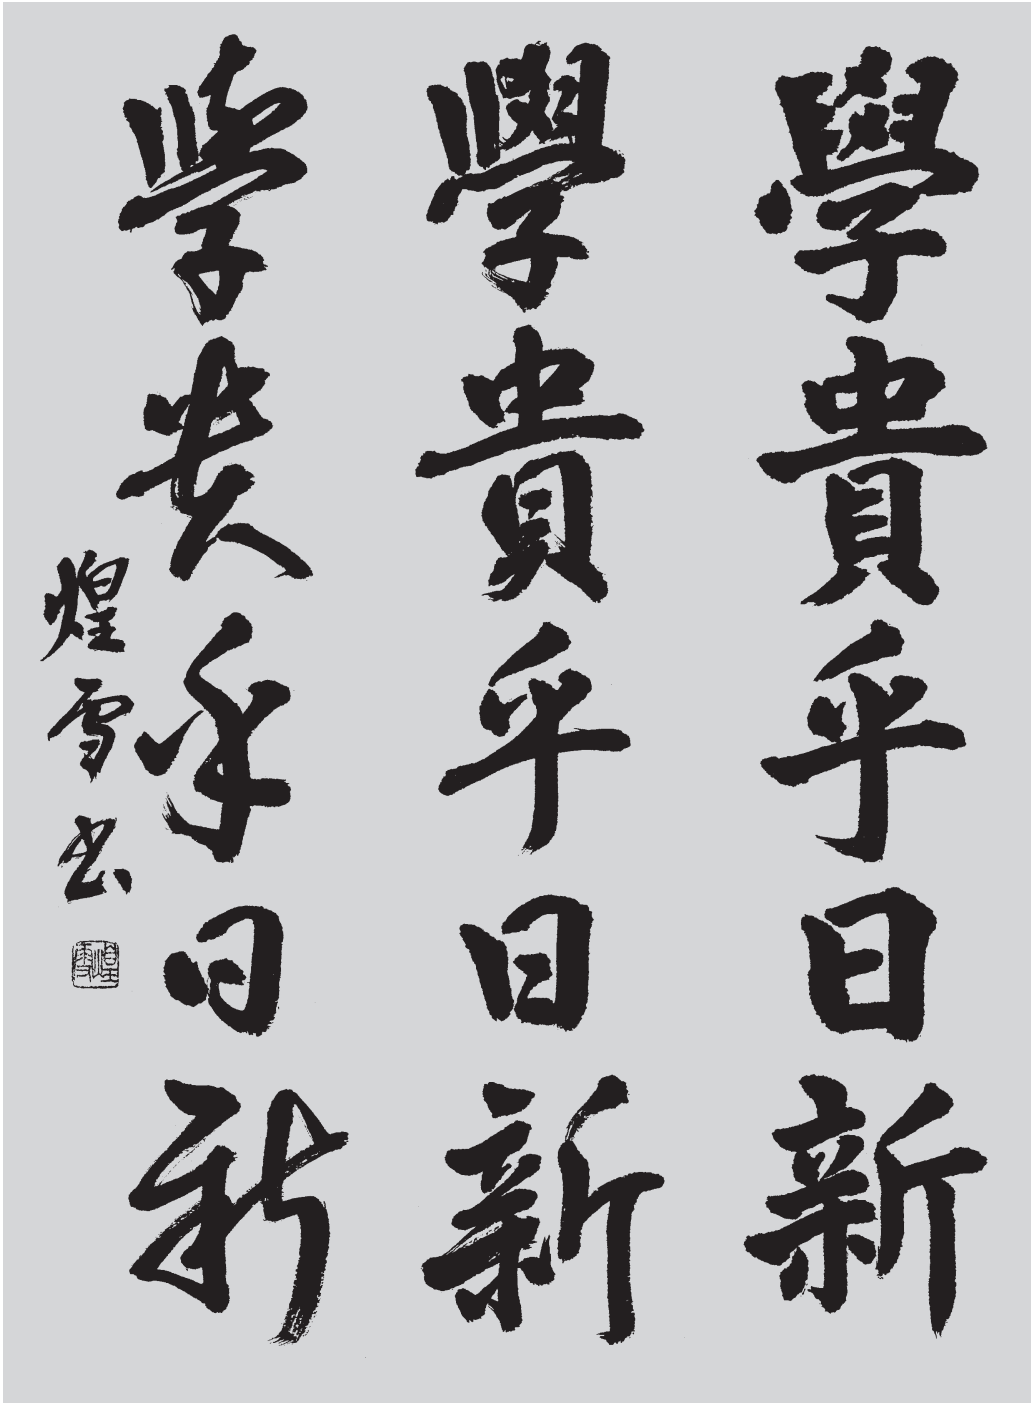 學貴乎日新
學貴乎日新
学貴乎日新
煌雪書
煌雪